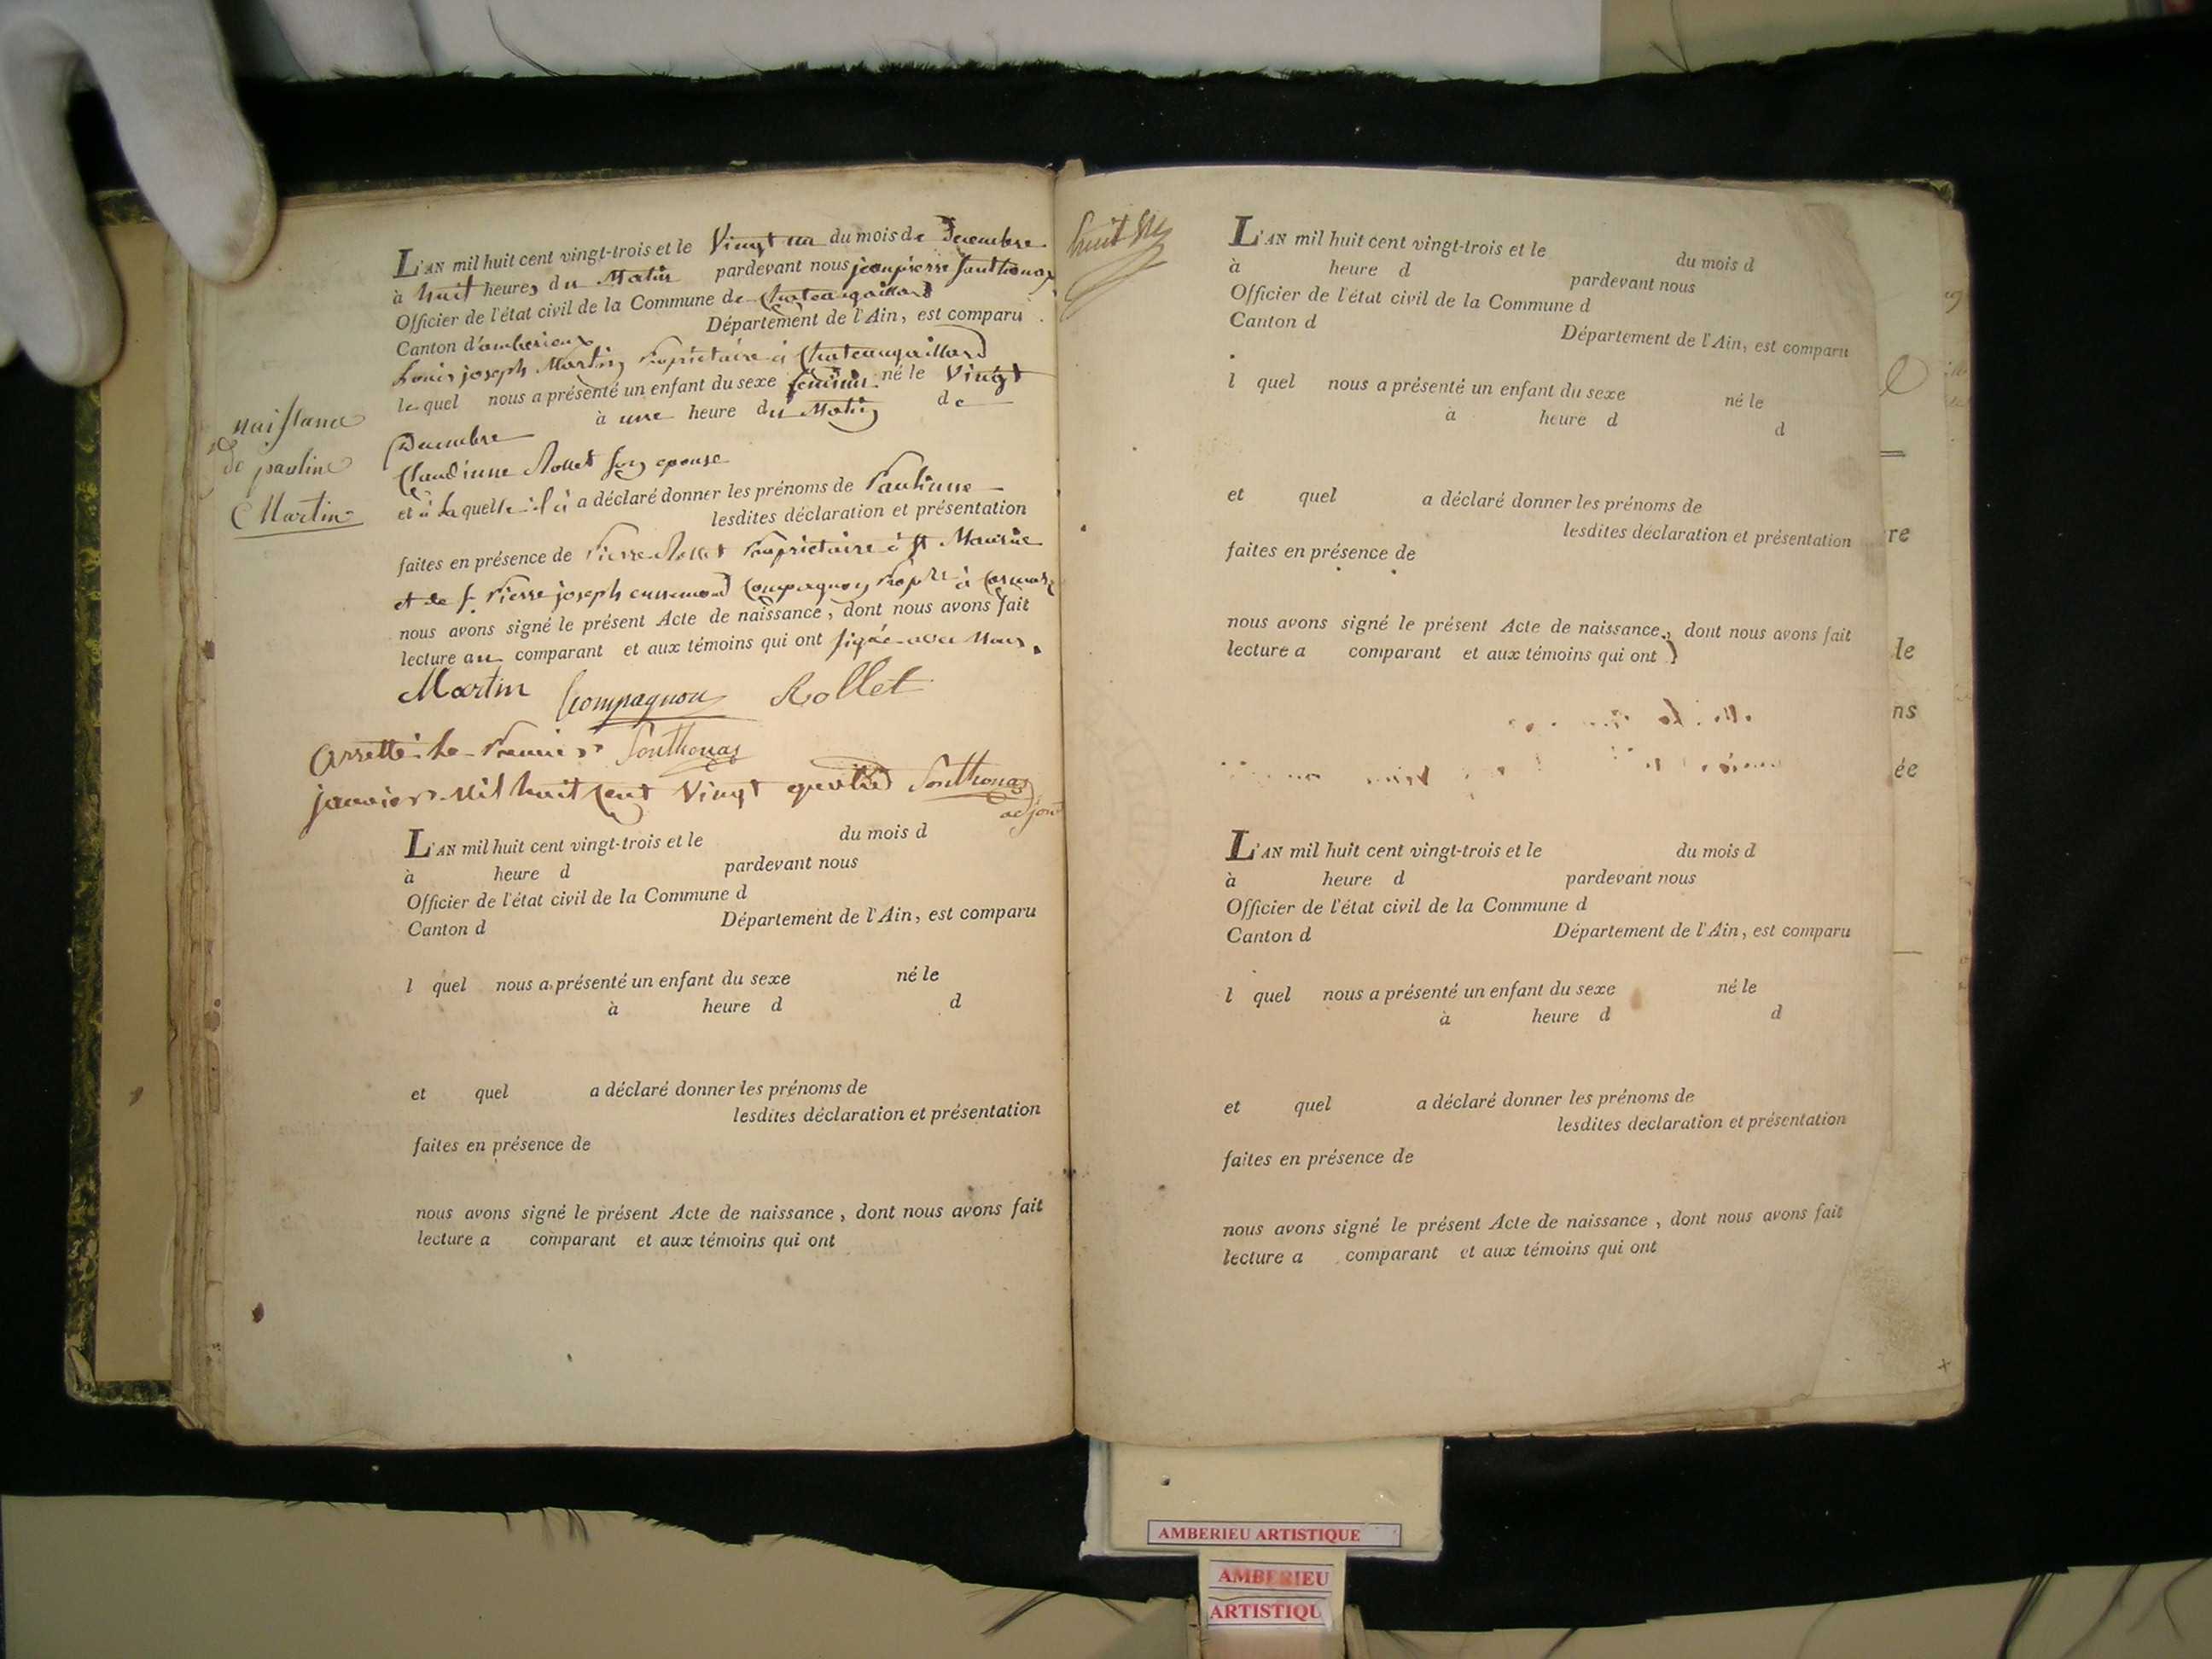 naissance
de pauline
Martin
L'AN mil huit cent vingt-trois et le Vingt un du mois de Decembre
à huit heures du Matin pardevant nous jeanpierre Sonthonax
Officier de l'état civil de la Commune de Chateaugaillard
Canton d'amberieux Département de l'Ain, est comparu
Louis joseph Martin Proprietaire à Chateaugaillard
lequel nous a présenté un enfant du sexe feminin né le Vingt
Decembre à une heure du Matin de
Claudinne Rollet son epouse
et à laquelle il à a déclaré donner les prénoms de Paulinne
lesdites déclaration et présentation
faites en présence de Pierre Rollet Proprietaire à St Maurice
et de s. Pierre joseph Compagnon Propre à
nous avons signé le présent Acte de naissance, dont nous avons fait
lecture au comparant et aux témoins qui ont signé avec Nous.
Martin Compagnon Rollet
Arretté Le Premier Sonthonax
janvier Mil huit Cent Vingt quatre Sonthonax
adjoint
L'AN mil huit cent vingt-trois et le du mois d
à heure d pardevant nous
Officier de l'état civil de la Commune d
Canton d Département de l'Ain, est comparu
l quel nous a présenté un enfant du sexe né le
à heure d d
et quel a déclaré donner les prénoms de
lesdites déclaration et présentation
faites en présence de
nous avons signé le présent Acte de naissance, dont nous avons fait
lecture a comparant et aux témoins qui ont
huit
L'AN mil huit cent vingt-trois et le du mois d
à heure d pardevant nous
Officier de l'état civil de la Commune d
Canton d Département de l'Ain, est comparu
l quel nous a présenté un enfant du sexe né le
à heure d d
et quel a déclaré donner les prénoms de
lesdites déclaration et présentation
faites en présence de
nous avons signé le présent Acte de naissance, dont nous avons fait
lecture a comparant et aux témoins qui ont
L'AN mil huit cent vingt-trois et le du mois d
à heure d pardevant nous
Officier de l'état civil de la Commune d
Canton d Département de l'Ain, est comparu
l quel nous a présenté un enfant du sexe né le
à heure d d
et quel a déclaré donner les prénoms de
lesdites déclaration et présentation
faites en présence de
nous avons signé le présent Acte de naissance, dont nous avons fait
lecture a comparant et aux témoins qui ont
re
le
ns
ée
AMBERIEU ARTISTIQUE
AMBERIEU
ARTISTIQU